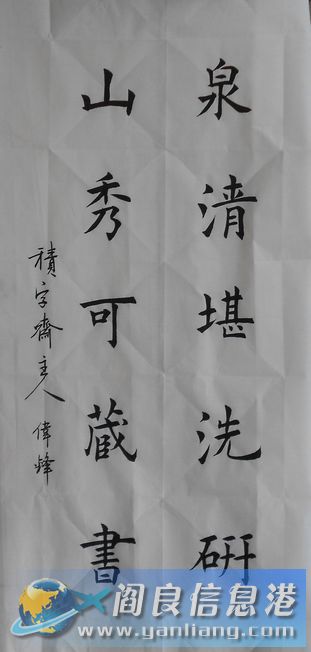 泉清堪洗研
山秀可蔵書
積字齋主人 偉鋒
阎良信息港
www.yanliang.com